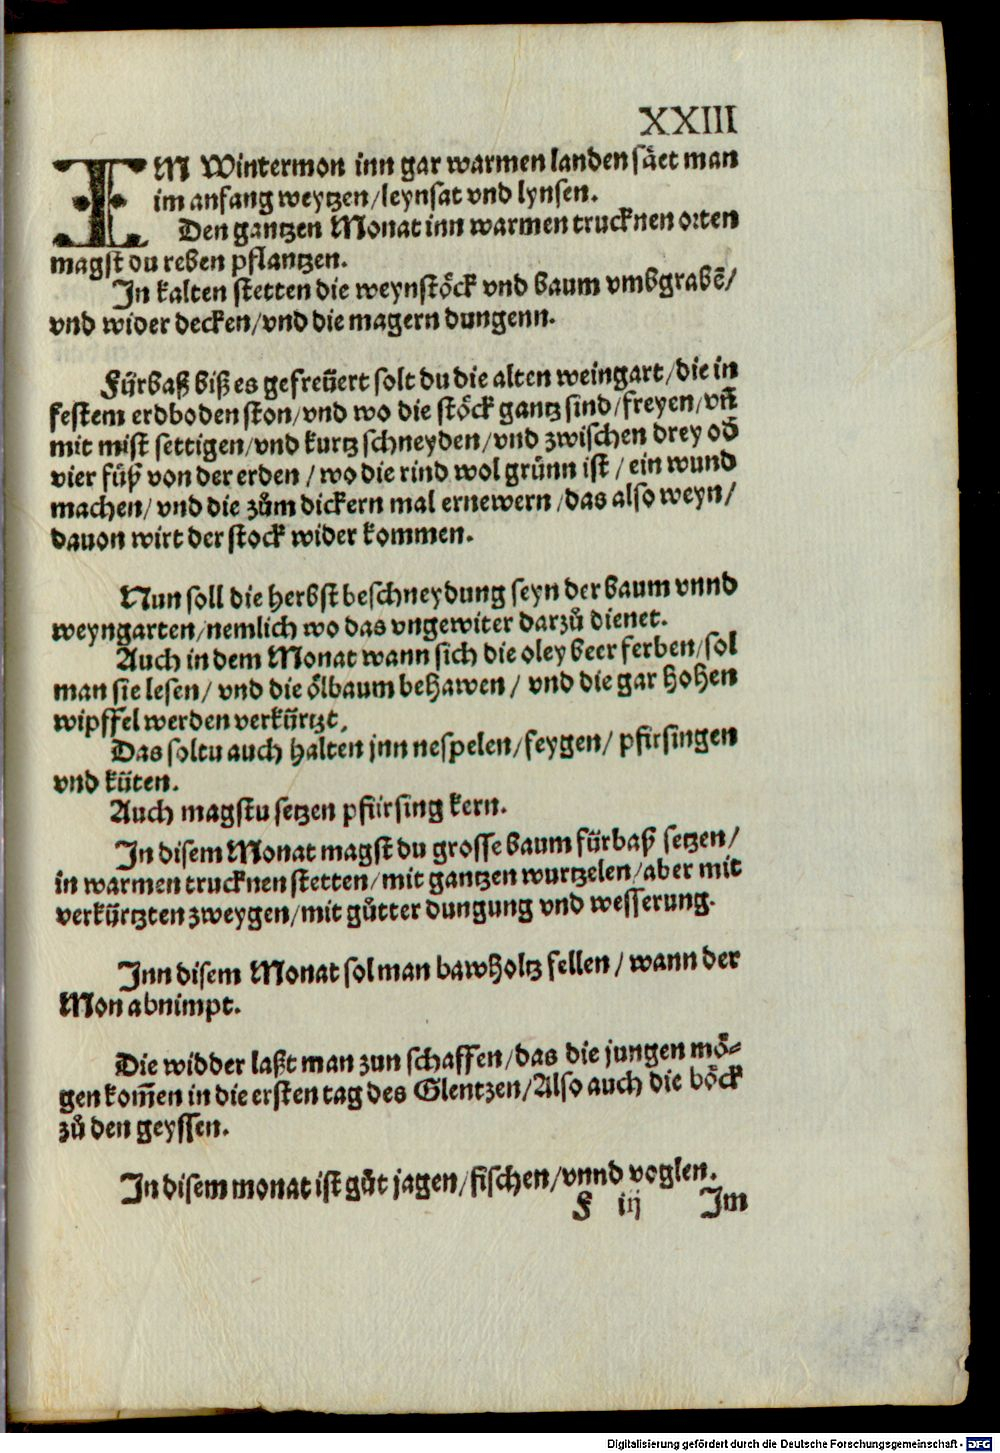 XXIII
IM Wintermon inn gar warmen landen säet man
im anfang weytzen/leynsat vnd lynsen.
Den gantzen Monat inn warmen trucknen orten
magst du reben pflantzen.
In kalten stetten die weynstöck vnd baum vmbgrabē/
vnd wider decken/vnd die magern dungenn.
Fürbaß biß es gefreüert solt du die alten weingart/die in
festem erdboden ston/vnd wo die stöck gantz sind/freyen/vñ
mit mist settigen/vnd kurtz schneyden/vnd zwischen drey oď
vier füß von der erden/wo die rind wol grünn ist/ein wund
machen/vnd die zům dickern mal ernewern/das also weyn/
dauon wirt der stock wider kommen.
Nun soll die herbst beschneydung seyn der baum vnnd
weyngarten/nemlich wo das vngewiter darzů dienet.
Auch in dem Monat wann sich die oley beer ferben/sol
man sie lesen/vnd die ölbaum behawen/vnd die gar hohen
wipffel werden verkürtzt.
Das soltu auch halten jnn nespelen/feygen/pfirsingen
vnd küten.
Auch magstu setzen pfirsing kern.
In disem Monat magst du grosse baum fürbaß setzen/
in warmen trucknen stetten/mit gantzen wurtzelen/aber mit
verkürtzten zweygen/mit gůtter dungung vnd wesserung.
Inn disem Monat sol man bawholtz fellen/wann der
Mon abnimpt.
Die widder laßt man zun schaffen/das die jungen mö-
gen kom̄en in die ersten tag des Glentzen/Also auch die böck
zů den geyssen.
In disem monat ist gůt jagen/fischen/vnnd voglen.
F iij Im
Digitalisierung gefördert durch die Deutsche Forschungsgemeinschaft - DFG